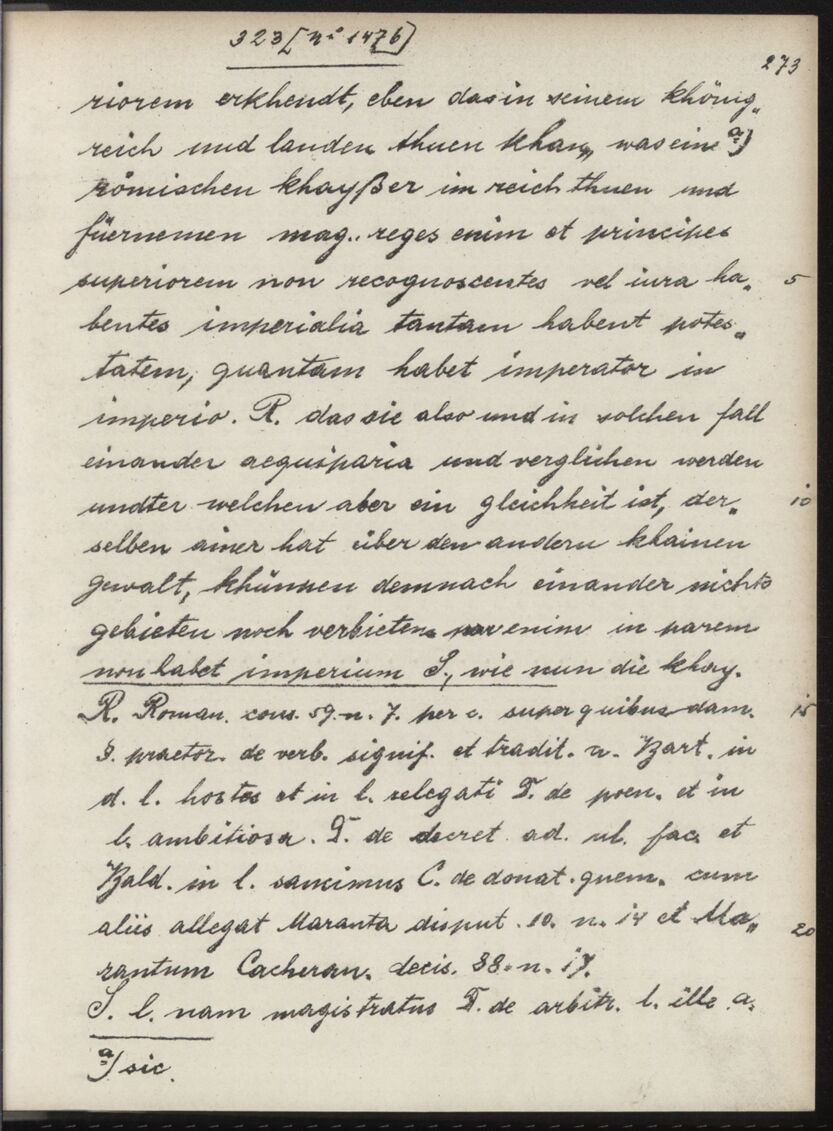 323 [nº 1476]
273
riorem erkhendt, eben das in seinem khönig„
reich und landen thuen khan, was eine a)
römischen khayßer im reich thuen und
füernemen mag. reges enim et principes
superiorem non recognoscentes vel iura ha„ 5
bentes imperialia tantam habent potes„
tatem, quantam habet imperator in
imperio. R. das sie also und in solchen fall
einander aequiparia und verglichen werden
undter welchen aber ein gleichheit ist, der„ 10
selben ainer hat über den andern khainen
gewalt, khünnen demnach einander nichts
gebieten noch verbieten. par enim in parem
non habet imperium S., wie nun die khay.
R. Roman. cons. 59. n. 7. per c. super quibus dam. 15
§. praetor. de verb. signif. et tradit. n. Bart. in
d. l. hostes et in l. relegati D. de poen. et in
l. ambitiosa. D. de decret ad. ul. fac et
Bald. in l. sancimus C. de donat. quem. cum
aliis allegat Maranta disput. 10. n. 14 et Ma„ 20
rantum Cacheran. decis. 38. n. 17.
S. l. nam magistratus D. de arbitr. l. ille a.
a) sic.